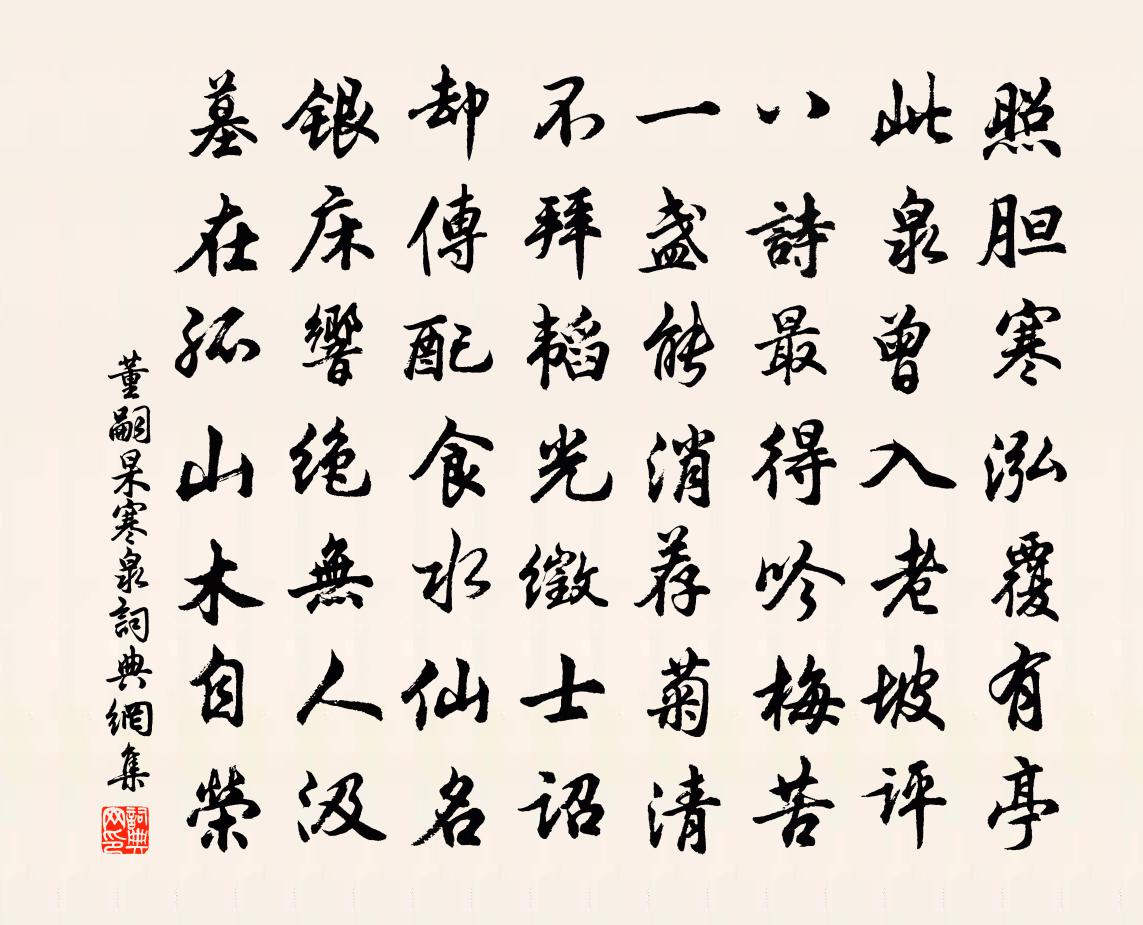 照胆寒泓覆有亭
此泉曾入老坡评
八詩最得吟梅苦
一盏能消荐菊清
不拜韬光徵士诏
却傳配食水仙名
銀床響绝無人汲
墓在孤山木自榮
董嗣杲寒泉詞典網集
詞典網印